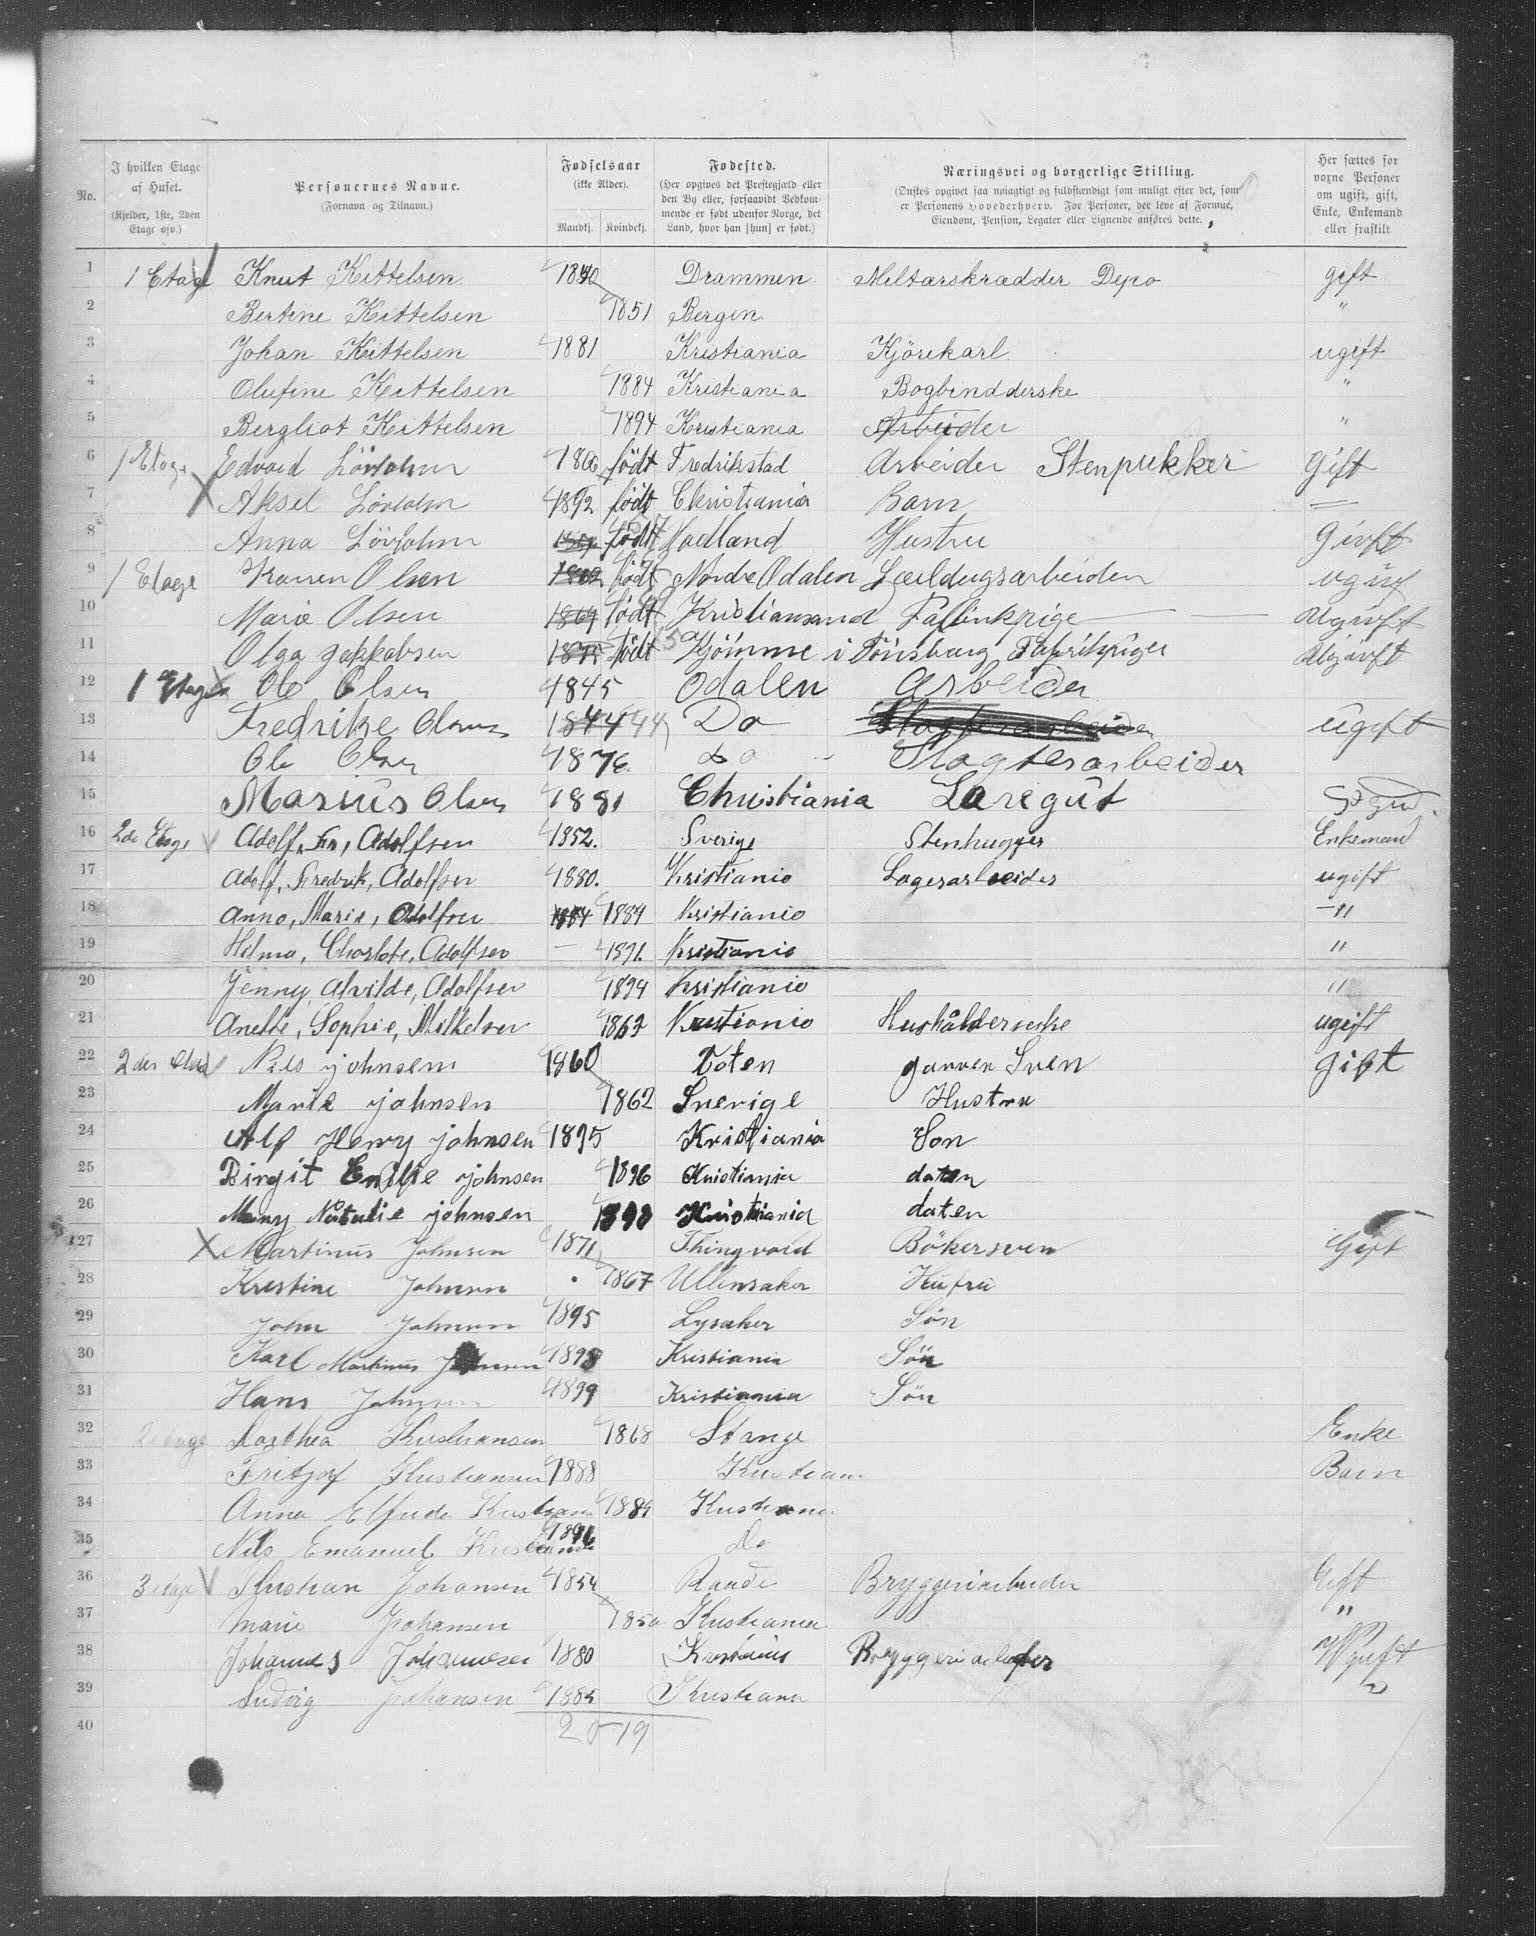 No. | I hvilken Etage af Huset. (Kjelder, 1ste, 2den Etage osv.) | Personernes Navne. (Fornavn og Tilnavn.) | Fødselsaar (ikke Alder). Mandkj. Kvindekj. | Fødested. (Her opgives det Prestegjæld eller den By eller, forsaavidt Vedkommende er født udenfor Norge, det Land, hvor han [hun] er født.) | Næringsvei og borgerlige Stilling. (Ønskes opgivet saa nøiagtigt og fuldstændigt som muligt efter det, som er Personens Hovederhverv. For Personer, der leve af Formue, Eiendom, Pension, Legater eller Lignende anføres dette. | Her sættes for voxne Personer om ugift, gift, Enke, Enkemand eller fraskilt
1 1 Etage Knut Kittelsen 1840 Drammen Meltarskrædder Depo gift
2 Bertine Kittelsen 1851 Bergen "
3 Johan Kittelsen 1881 Kristiania Kjörekarl ugift
4 Olufine Kittelsen 1884 Kristiania Bogbindderske "
5 Bergliot Kittelsen 1894 Kristiania Arbeider "
6 1 Etage Edvard Lövholm født Fredrikstad Arbeider Stenpukker Gift
7 Aksel Lövholm 1892 født Christiania Barn
8 Anna Lövholm født Hustru Givft
9 1 Etage Karen Olsen født Nordre Odalen ugift
10 Marie Olsen 1869 født Kristiansand Ugivft
11 Olga født Kjömme i Tönsberg Fabrikpiger Ugivft
12 1 Etage Ole Olsen 1845 Odalen Arbeider
13 Fredrike Olsen 1844 44 Do ugift
14 Ole Olsen 1876 do Slagterarbeider
15 Marius Olsen 1881 Christiania Laregut
16 2de Etage Adolf, Fr, Adolfsen 1852. Sverige Stenhugger Enkemand
17 Adolf, Fredrik, Adolfsen 1880. Kristiania Lagerarbeider ugift
18 Anna, Marie, Adolfsen 1884 1884 Kristiania "
19 Hilma, Charlote, Adolfsen 1891. Kristiania "
20 Jenny, Alvilde, Adolfsen 1894 Kristiania "
21 Anette, Sophie, Mikkelsen 1863 Kristiania Husholderske ugift
22 2den Nils johnsen 1860 Toten garver Sven gift
23 Marie johnsen 1862 Sverige Hustru
24 Alf Henry johnsen 1895 Kristiania Son
25 Birgit Emilie johnsen 1896 Kristiania daten
26 Mary Natalie johnsen 1898 Kristiania daten
27 Martinus Johnsen 1871 Thingvold Bökersven Gift
28 Kristine Johnsen 1867 Ullensaker Hufru
29 John Johnsen 1895 Lysaker Sön
30 Karl Martinus Johnsen 1898 Kristiania Sön
31 Hans Johnsen 1899 Kristiania Sön
32 2 etage Dorthea Kristiansen 1868 Stange Enke
33 Fritjof Kristiansen 1888 Kristiania Barn
34 Anna Elfrida Kristiansen 1889 Kristiania
35 Nils Emanuel Kristiansen 1896 Do
36 3 etage Kristian Johansen 1854 Raade Bryggeriarbeider Gift
37 Marie Johansen 1850 Kristiania "
38 Johannes Johannesen 1880 Kristiania Bryggeriarbeider Ugift
39 Ludvig Johansen 1885 Kristiania
40 20 19